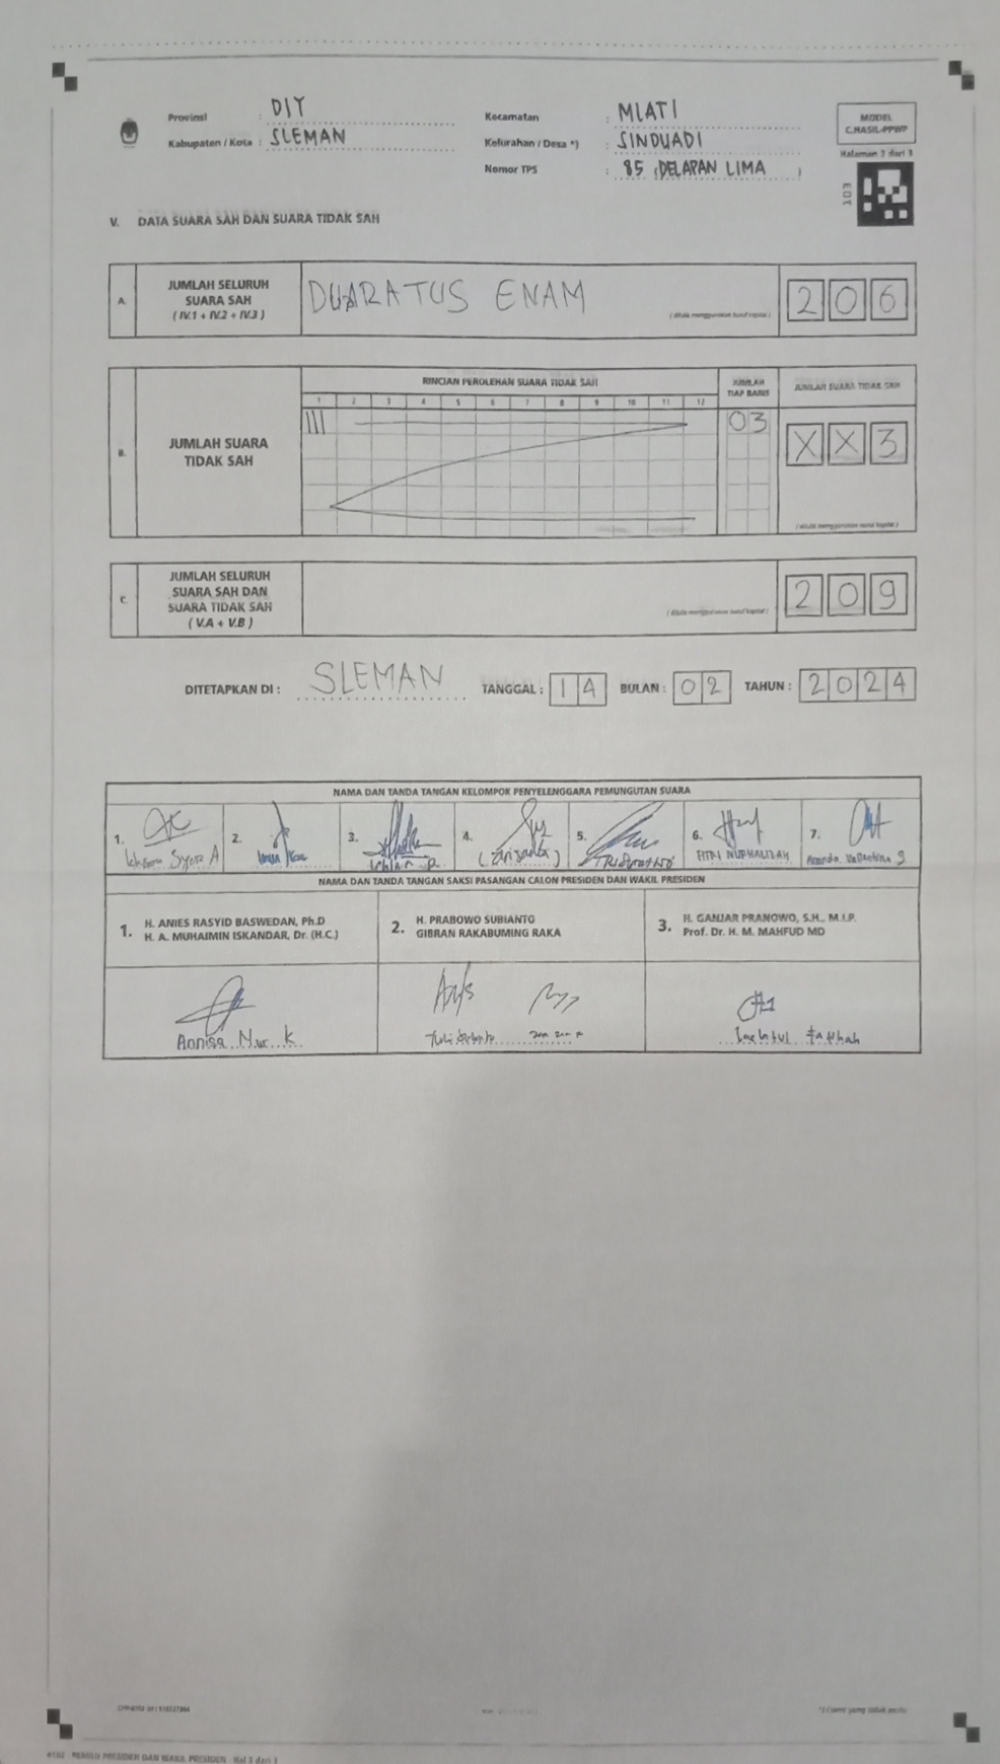 Provinsi : DIY
Kabupaten / Kota : SLEMAN
Kecamatan : MLATI
Kelurahan / Desa *) : SINDUADI
Nomor TPS : 85 (DELAPAN LIMA)
MODEL
C.HASIL-PPWP
Halaman 3 dari 3
103
V. DATA SUARA SAH DAN SUARA TIDAK SAH
A. JUMLAH SELURUH SUARA SAH ( IV.1 + IV.2 + IV.3 )
DUARATUS ENAM
(ditulis menggunakan huruf kapital)
206
B. JUMLAH SUARA TIDAK SAH
RINCIAN PEROLEHAN SUARA TIDAK SAH
JUMLAH TIAP BARIS
JUMLAH SUARA TIDAK SAH
1 2 3 4 5 6 7 8 9 10 11 12
III
03
XX3
(ditulis menggunakan huruf kapital)
C. JUMLAH SELURUH SUARA SAH DAN SUARA TIDAK SAH ( V.A + V.B )
(ditulis menggunakan huruf kapital)
209
DITETAPKAN DI : SLEMAN TANGGAL : 14 BULAN : 02 TAHUN : 2024
NAMA DAN TANDA TANGAN KELOMPOK PENYELENGGARA PEMUNGUTAN SUARA
1. 2. 3. 4. 5. 6. 7.
FITRI NURHALIZAH
NAMA DAN TANDA TANGAN SAKSI PASANGAN CALON PRESIDEN DAN WAKIL PRESIDEN
1. H. ANIES RASYID BASWEDAN, Ph.D
H. A. MUHAIMIN ISKANDAR, Dr. (H.C.)
2. H. PRABOWO SUBIANTO
GIBRAN RAKABUMING RAKA
3. H. GANJAR PRANOWO, S.H., M.I.P.
Prof. Dr. H. M. MAHFUD MD
Annisa Nur K
*) Coret yang tidak perlu
PEMILU PRESIDEN DAN WAKIL PRESIDEN - Hal 3 dari 3